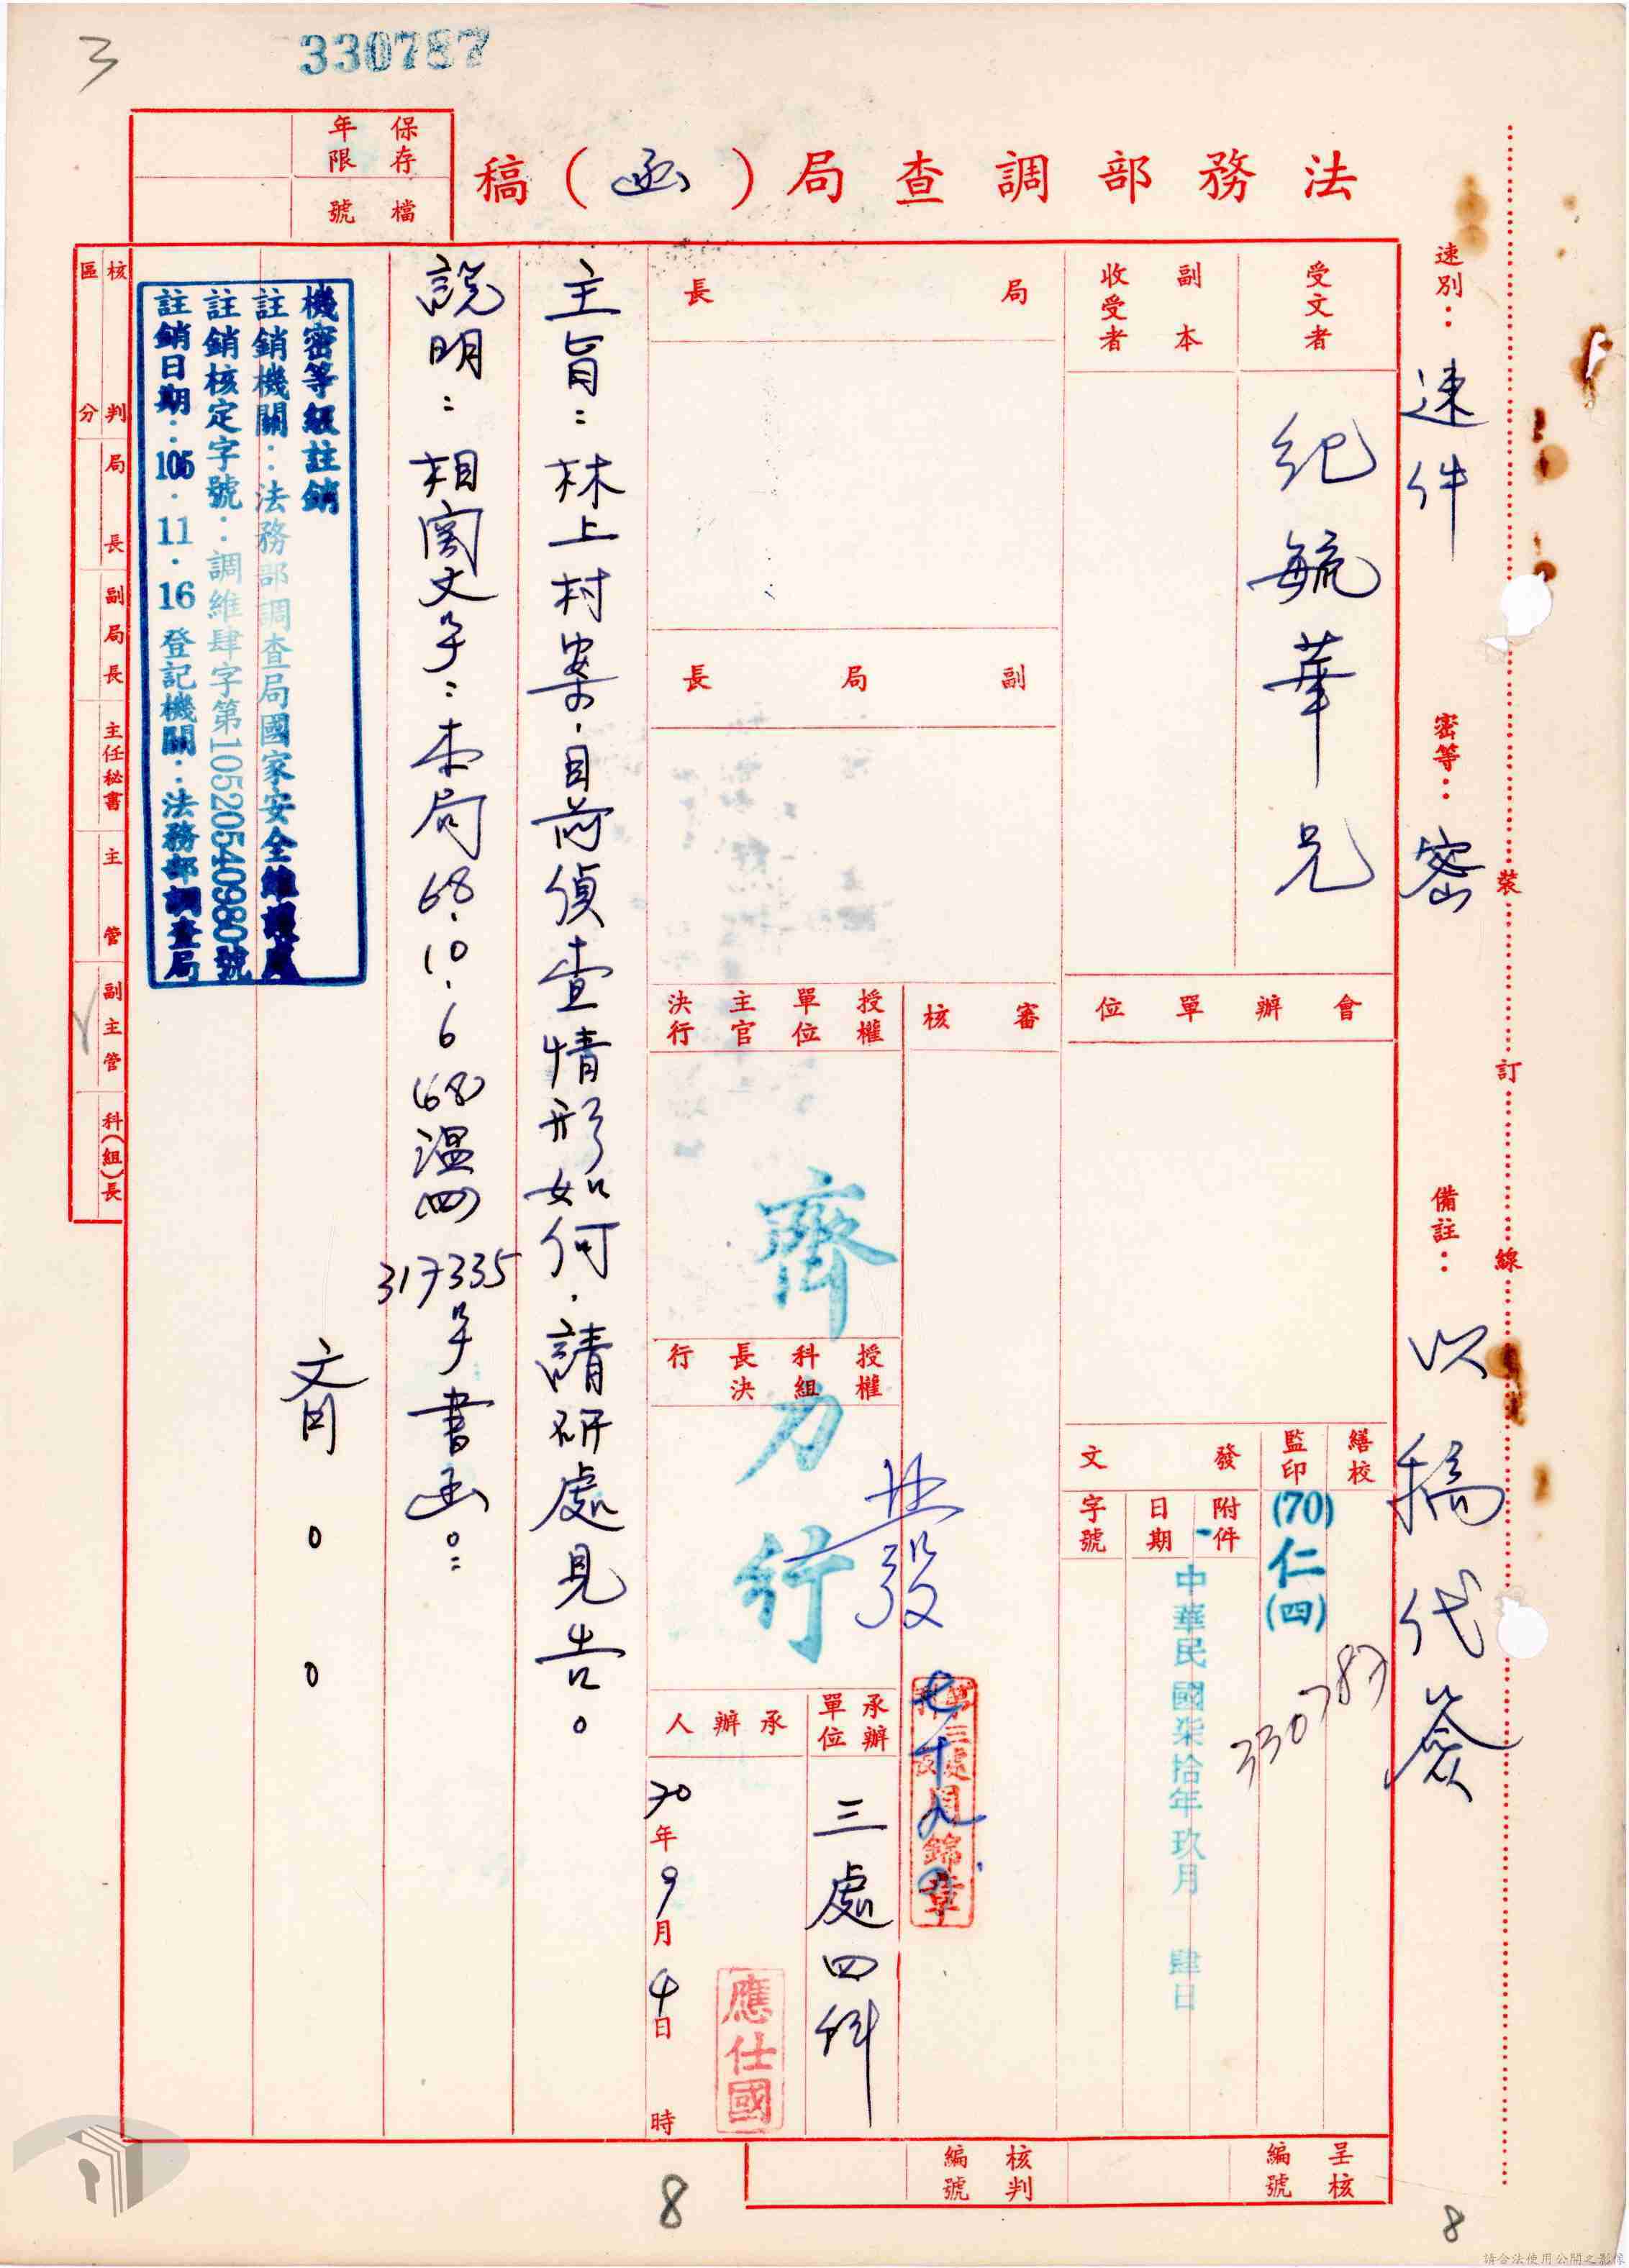 330787
3
保存年限
檔號
法務部調查局（函）稿
速別：速件
密等：密
備註：以稿代簽
裝
訂
線
受文者
紀毓華兄
副本收受者
會辦單位
繕校
監印
發文
附件
日期
字號
(70)仁(四)
330787
中華民國柒拾年玖月肆日
局長
副局長
審核
授權單位主官決行
齊力行
授權科組長決行
發
七十九
承辦單位
三處四科
承辦人
應仕國
70年9月4日時
主旨：林上村案，目前偵查情形如何，請研處見告。
說明：相關文號：本局68.10.6(68)溫(四)317335號書函。
齊○○
機密等級註銷
註銷機關：法務部調查局國家安全維護處
註銷核定字號：調維肆字第10520540980號
註銷日期：105．11．16登記機關：法務部調查局
核判區分
局長
副局長
主任秘書
主管
副主管
科(組)長
呈核編號
核判編號
8
8
請合法使用公開之影像